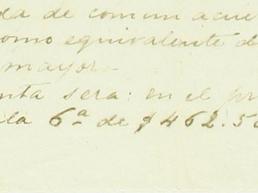 da de comun acue
como equivalente d
mayor.
nta sera: en el pr
la 6ª de $462.50